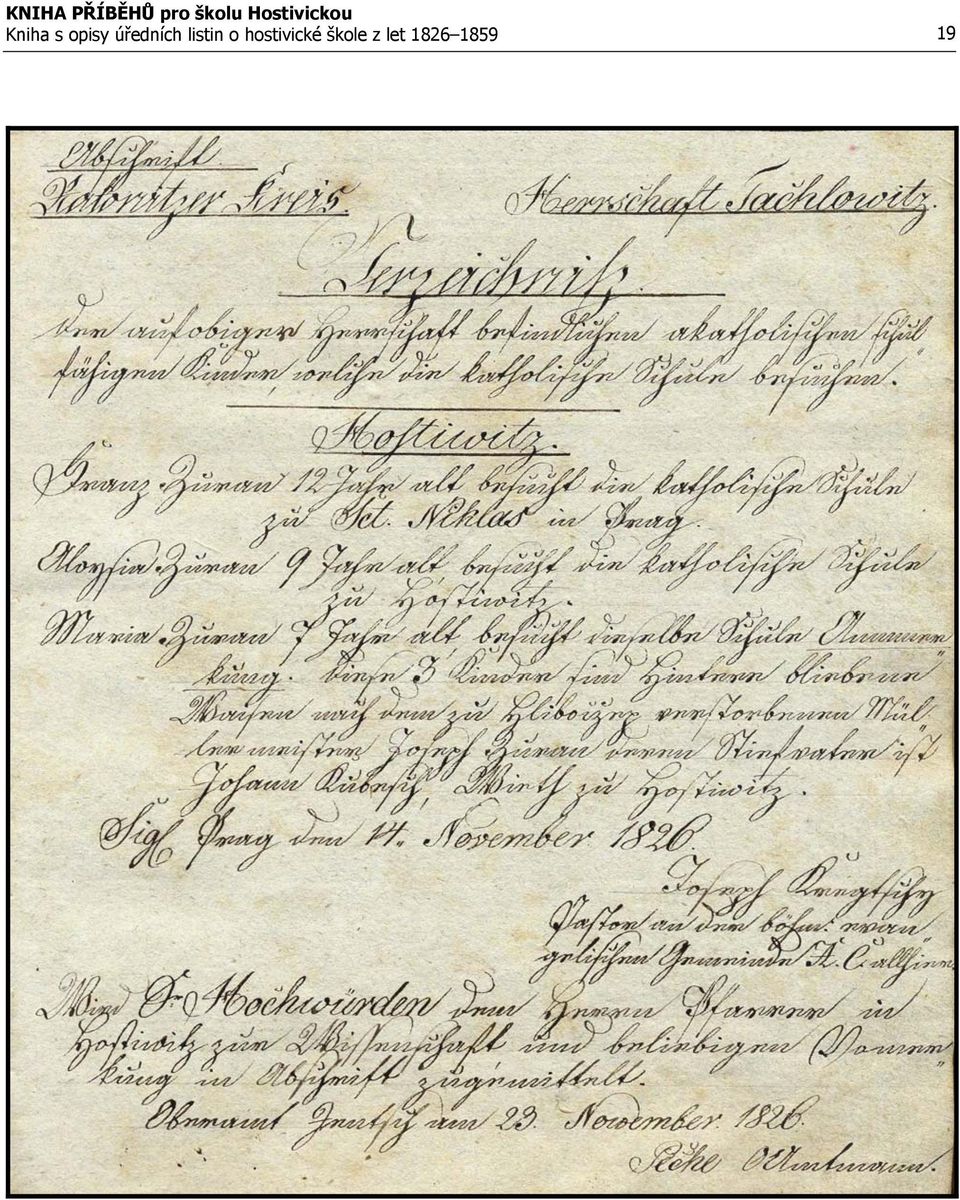 KNIHA PŘÍBĚHŮ pro školu Hostivickou
Kniha s opisy úředních listin o hostivické škole z let 1826–1859 19
Abschrift.
Rakonitzer Kreis. Herrschaft Tachlowitz.
Verzeichniß
der auf obiger Herrschaft befindlichen akatholischen schul
fähigen Kinder, welche die katholische Schule besuchen.
Hostiwitz.
Franz Zuran 12 Jahr alt besucht die katholische Schule
zu Sct. Niklas in Prag.
Aloysia Zuran 9 Jahr alt, besucht die katholische Schule
zu Hostiwitz.
Maria Zuran 7 Jahr alt, besucht dieselbe Schule Anmer
kung. Diese 3 Kinder sind Hinterr bliebene
Waisen nach dem zu verstorbenen Mül
ler meister Joseph Zuran deren Stiefvater ist
Johann Kubesch, Wirth zu Hostiwitz.
Sigl Prag den 14. November 1826.
Joseph
Pastor an der böhm: evan
gelischen Gemeinde A. C. allhier.
Wird Sr Hochwürden dem Herrn Pfarrer in
Hostiwitz zur Wissenschaft und beliebigen Vormer
kung in Abschrift zugemittelt.
Oberamt Jentsch am 23. November 1826.
Amtmann.